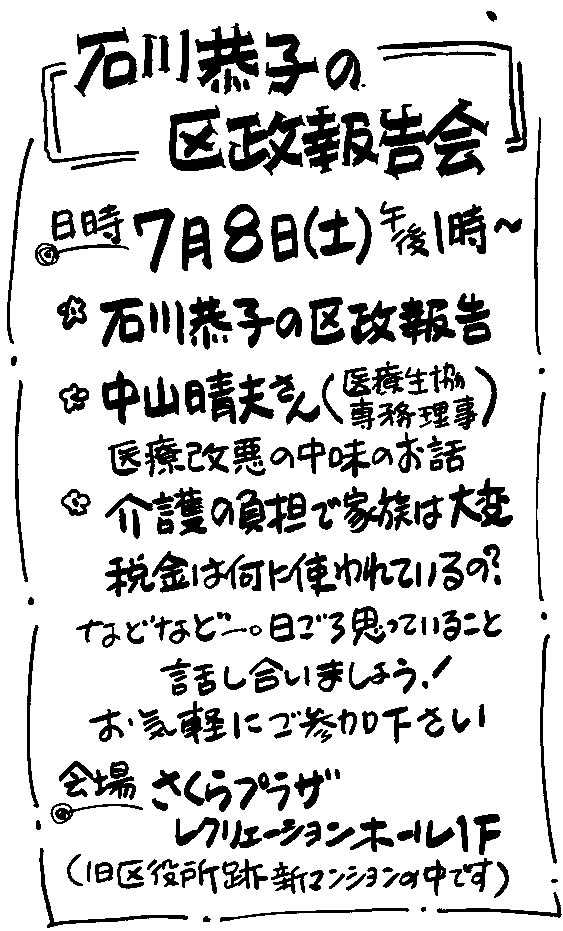 石川恭子の
区政報告会
日時 7月8日(土)午後1時~
石川恭子の区政報告
中山晴夫さん(医療生協専務理事)
医療改悪の中味のお話
介護の負担で家族は大変
税金は何に使われているの?
などなど―。日ごろ思っていること
話し合いましょう!
お気軽にご参加下さい
会場 さくらプラザ
レクリエーションホール1F
(旧区役所跡新マンションの中です)